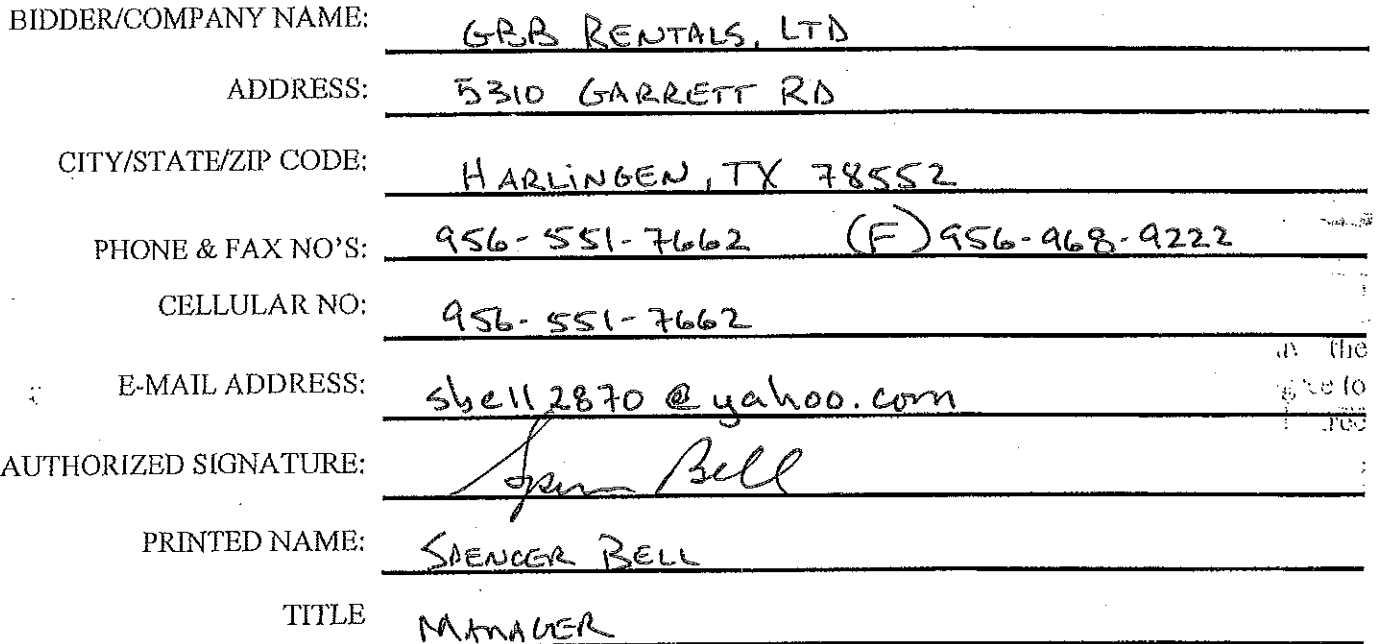 BIDDER/COMPANY NAME: GBB RENTALS, LTD
ADDRESS: 5310 GARRETT RD
CITY/STATE/ZIP CODE: HARLINGEN, TX 78552
PHONE & FAX NO'S: 956-551-7662 (F) 956-968-9222
CELLULAR NO: 956-551-7662
the
E-MAIL ADDRESS: sbell2870@yahoo.com
AUTHORIZED SIGNATURE: Spencer Bell
PRINTED NAME: SPENCER BELL
TITLE MANAGER